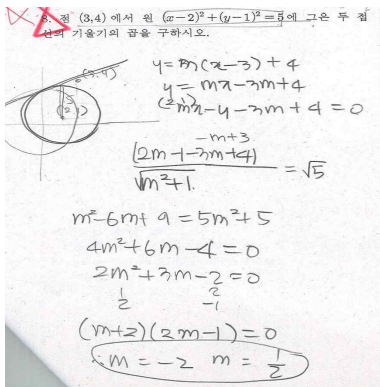 8. 점 (3,4) 에서 원 (x-2)²+(y-1)²=5에 그은 두 접
선의 기울기의 곱을 구하시오.
(3,4)
(2,1)
y=m(x-3)+4
y=mx-3m+4
(2,1) mx-y-3m+4=0
-m+3
(2m-1-3m+4)
√m²+1. =√5
m²-6m+9=5m²+5
4m²+6m-4=0
2m²+3m-2=0
1 2
2 -1
(m+2)(2m-1)=0
∴m=-2 m=1/2